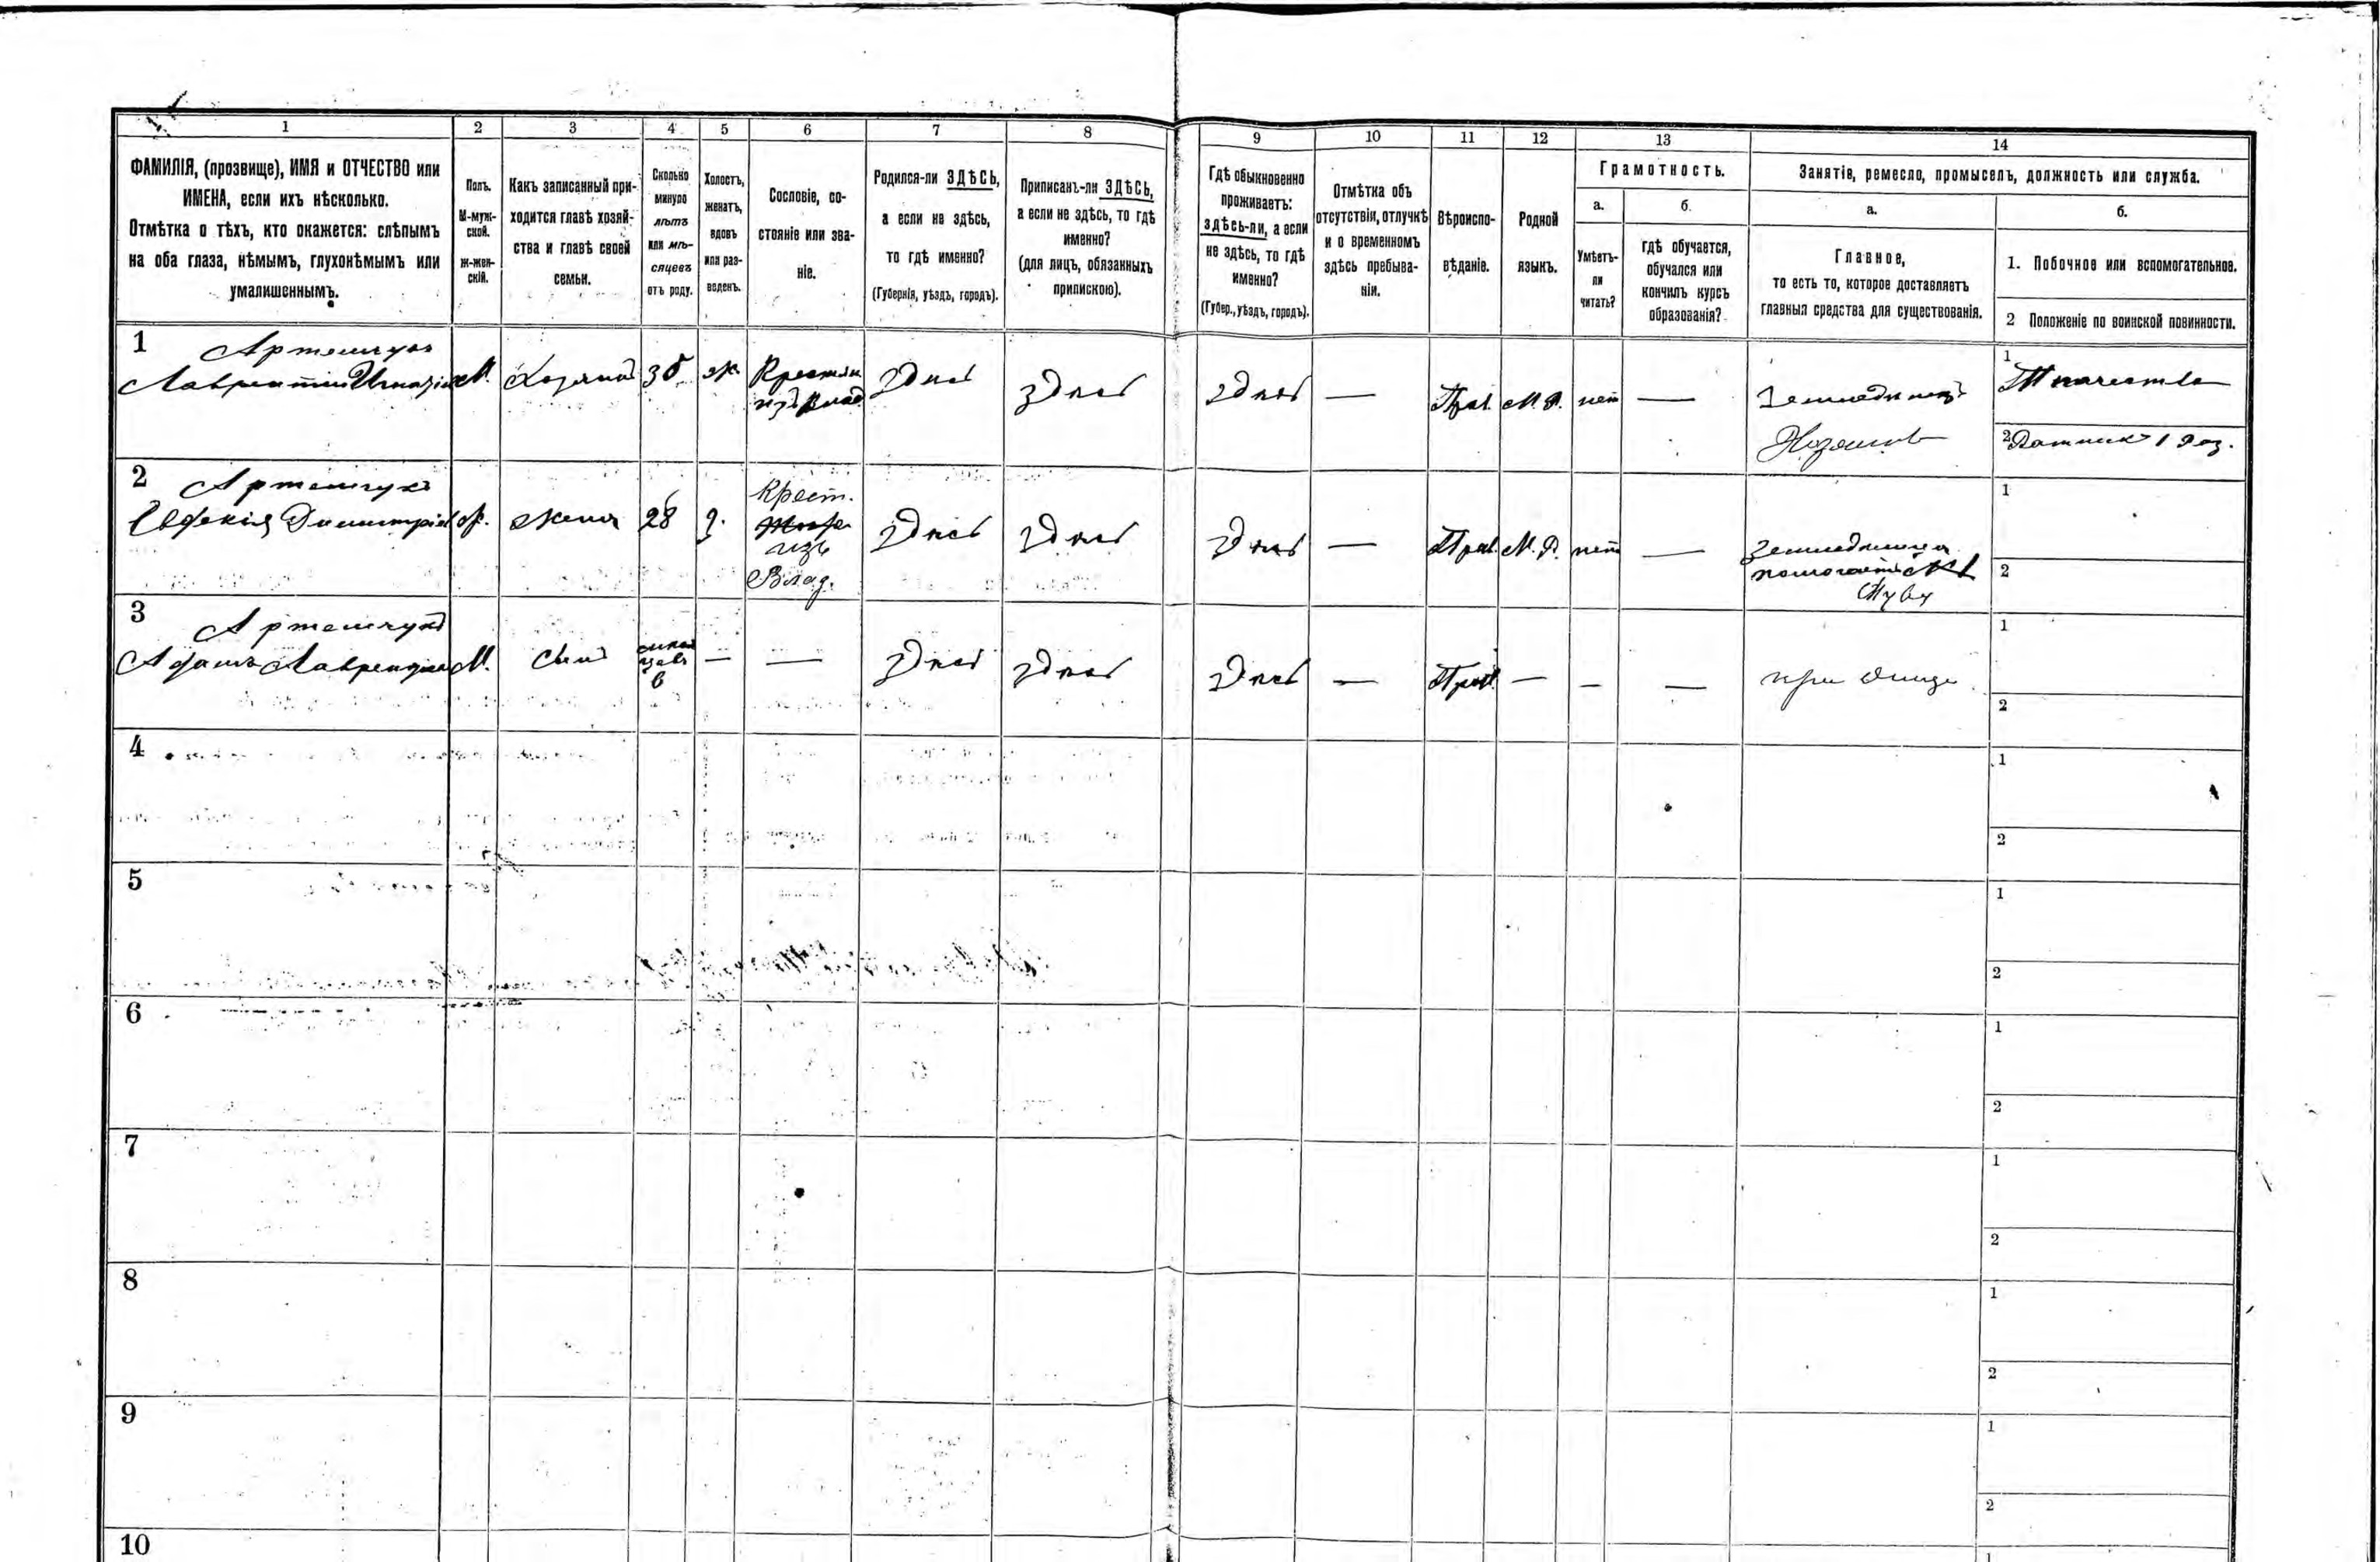 1 2 3 4 5 6 7 8 9 10 11 12 13 14
ФАМИЛІЯ, (прозвище), ИМЯ и ОТЧЕСТВО или
ИМЕНА, если ихъ нѣсколько.
Отмѣтка о тѣхъ, кто окажется: слѣпымъ
на оба глаза, нѣмымъ, глухонѣмымъ или
умалишеннымъ.
Полъ.
М-муж-
ской.
Ж-жен-
скій.
Какъ записанный при-
ходится главѣ хозяй-
ства и главѣ своей
семьи.
Сколько
минуло
лѣтъ
или мѣ-
сяцевъ
отъ роду.
Холостъ,
женатъ,
вдовъ
или раз-
веденъ.
Сословіе, со-
стояніе или зва-
ніе.
Родился-ли ЗДѢСЬ,
а если не здѣсь,
то гдѣ именно?
(Губернія, уѣздъ, городъ).
Приписанъ-ли ЗДѢСЬ,
а если не здѣсь, то гдѣ
именно?
(для лицъ, обязанныхъ
припискою).
Гдѣ обыкновенно
проживаетъ:
здѣсь-ли, а если
не здѣсь, то гдѣ
именно?
(Губер., уѣздъ, городъ).
Отмѣтка объ
отсутствіи, отлучкѣ
и о временномъ
здѣсь пребыва-
ніи.
Вѣроиспо-
вѣданіе.
Родной
языкъ.
Грамотность.
а.
Умѣетъ-
ли
читать?
б.
гдѣ обучается,
обучался или
кончилъ курсъ
образованія?
Занятіе, ремесло, промыселъ, должность или служба.
а.
Главное,
то есть то, которое доставляетъ
главныя средства для существованія.
б.
1. Побочное или вспомогательное.
2 Положеніе по воинской повинности.
1 Артемчукъ
Лаврентій
М.
Хозяинъ
ж
Крестьян
изъ Влад.
здѣсь
здѣсь
здѣсь
—
Прав.
М. Р.
нет
—
Земледѣлецъ
Хозяинъ
1
Ткачество
2 Ратник 1 раз.
2 Артемчукъ
Димитріев
ж.
жена
28
з.
Крест.
изъ
Влад.
здѣсь
здѣсь
здѣсь
—
Прав.
М. Р.
нет
—
помогаетъ
мужу
1
2
3 Артемчукъ
Адамъ
М.
сынъ
6
—
—
здѣсь
здѣсь
здѣсь
—
Прав.
—
—
—
при отцѣ
1
2
4
1
2
5
1
2
6
1
2
7
1
2
8
1
2
9
1
2
10
1